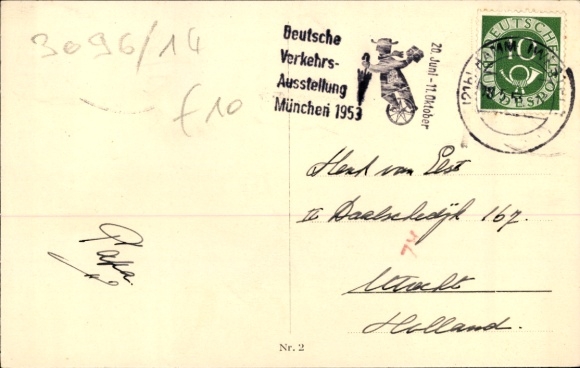 3096/14
f 10
Deutsche
Verkehrs-
Ausstellung
München 1953
20. Juni - 11. Oktober
DEUTSCHE
10
POST
Henk van Elst
II Daalschedijk 167.
74
Utrecht
Holland.
Papa.
Nr. 2